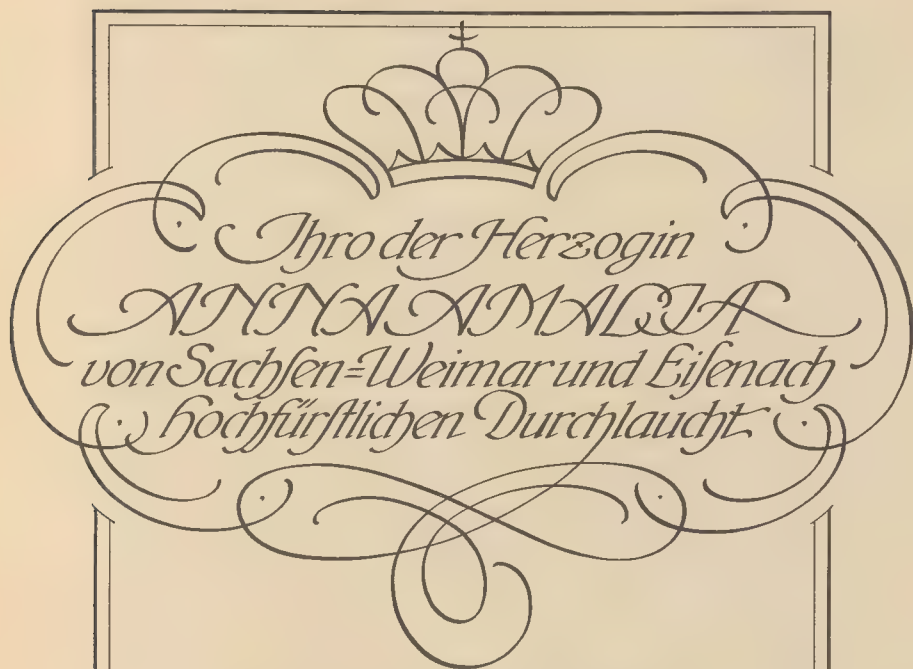 Ihro der Herzogin
ANNA AMALIA
von Sachſen=Weimar und Eiſenach
hochfürſtlichen Durchlaucht